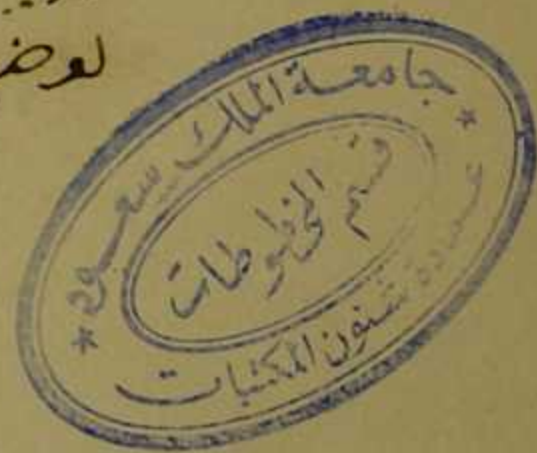 لوضـ
جامعة الملك سعود
قسم المخطوطات
عمادة شئون المكتبات